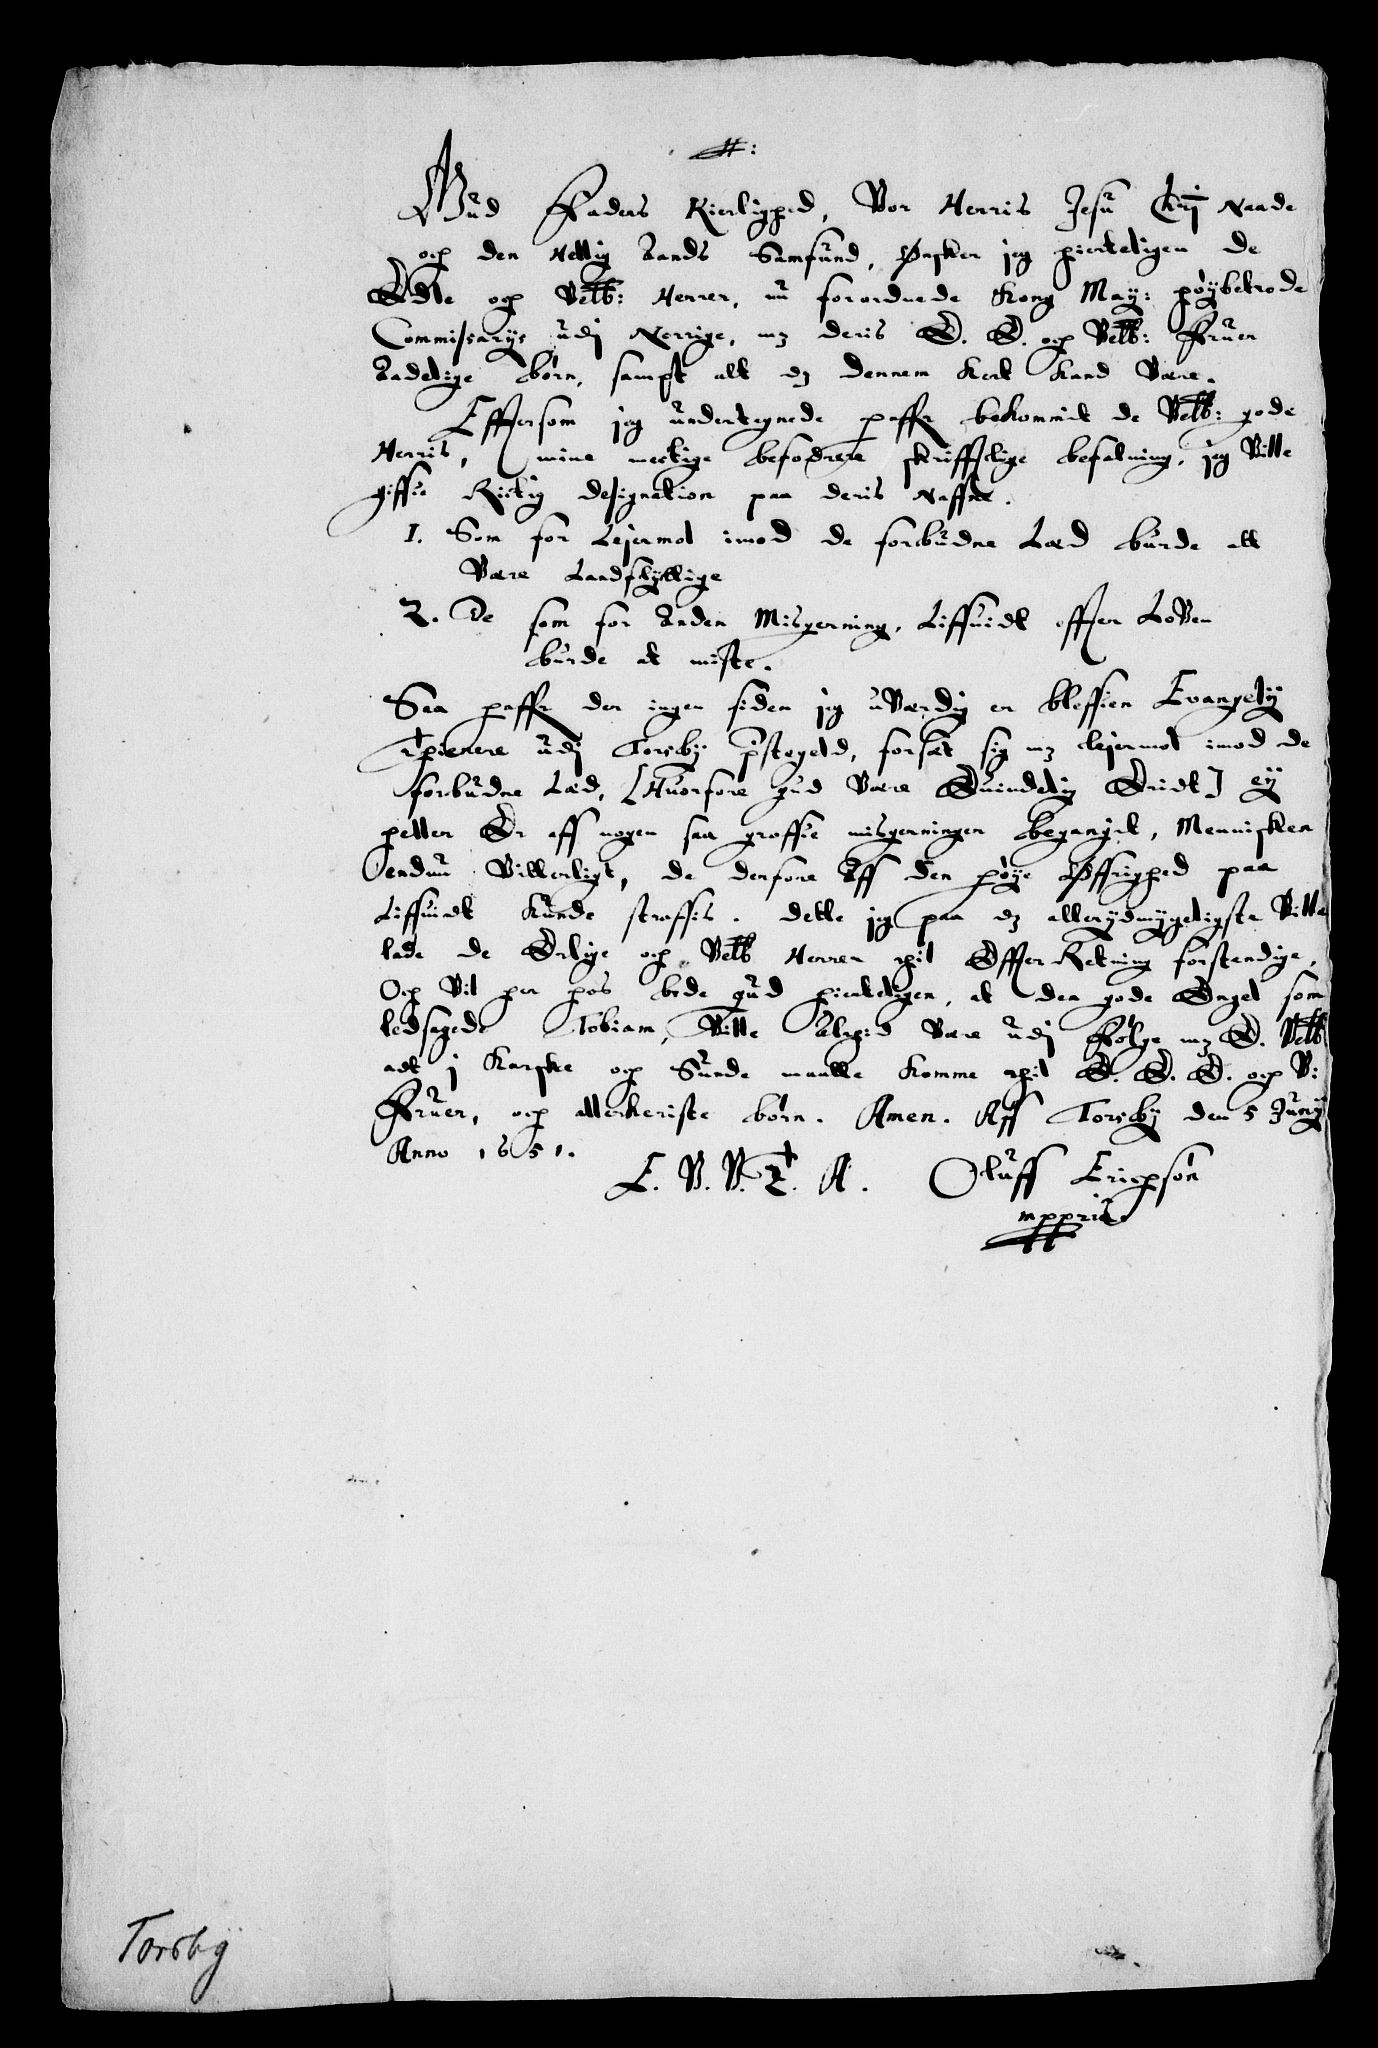 Gud Faders Kierlighed, Vor Herris Jesu Chrj Naade
och den Hellig Aands Samfund, Ønsker jeg hierteligen de
Edle och Velb: Herrer, nu forordnede Kong May: höybetrode
Commissarys udj Norrige, mz deris E. E. och Velb: Fruer
Aadelige børn, sampt alt dz dennem kert kand være.
Effterson jeg undertegnede haffr bekommit de Velb: gode
Herris, mine mectige befodrere skrifftlige befalning, jeg ville
giffue Rictig designation paa deris Naffne.
1. Som for Lejermol imod de forbudne Læd burde att
være Landflyttige
2. De som for Anden Misgerning, Liffuidt effter Loven
burde at miste.
Saa haffr der ingen siden jeg uværdig er bleffuen Evangelij
thienere udj Torsby pstegeld, forsæt sig mz lejermol imod de
forbudne Læd, [Huorfore gud være Euindelig Eridt] ey
heller Er aff nogen saa groffue misgerninger begangit, Mennisken
endnu vitterligt, de derfore Aff den høye Øffrighed paa
Liffuidt kunde straffis. Dette jeg paa dz allerydmygeligste ville
lade de Erlige och Velb Herrer thil Effter Retning forstendige,
Och vil her hos bede gud hierteligen, at den gode Engel som
ledsagede Tobiam, ville altid være udj Følge mz E. Velb
att j karske och Sunde maatte komme thil E. E. E. och V:
Fruer, och allerkeriste børn. Amen. Aff Torsby den 5 Junij
Anno 1651.
E. V. V. T. A. Oluff Erichsøn
mppria
Torsby